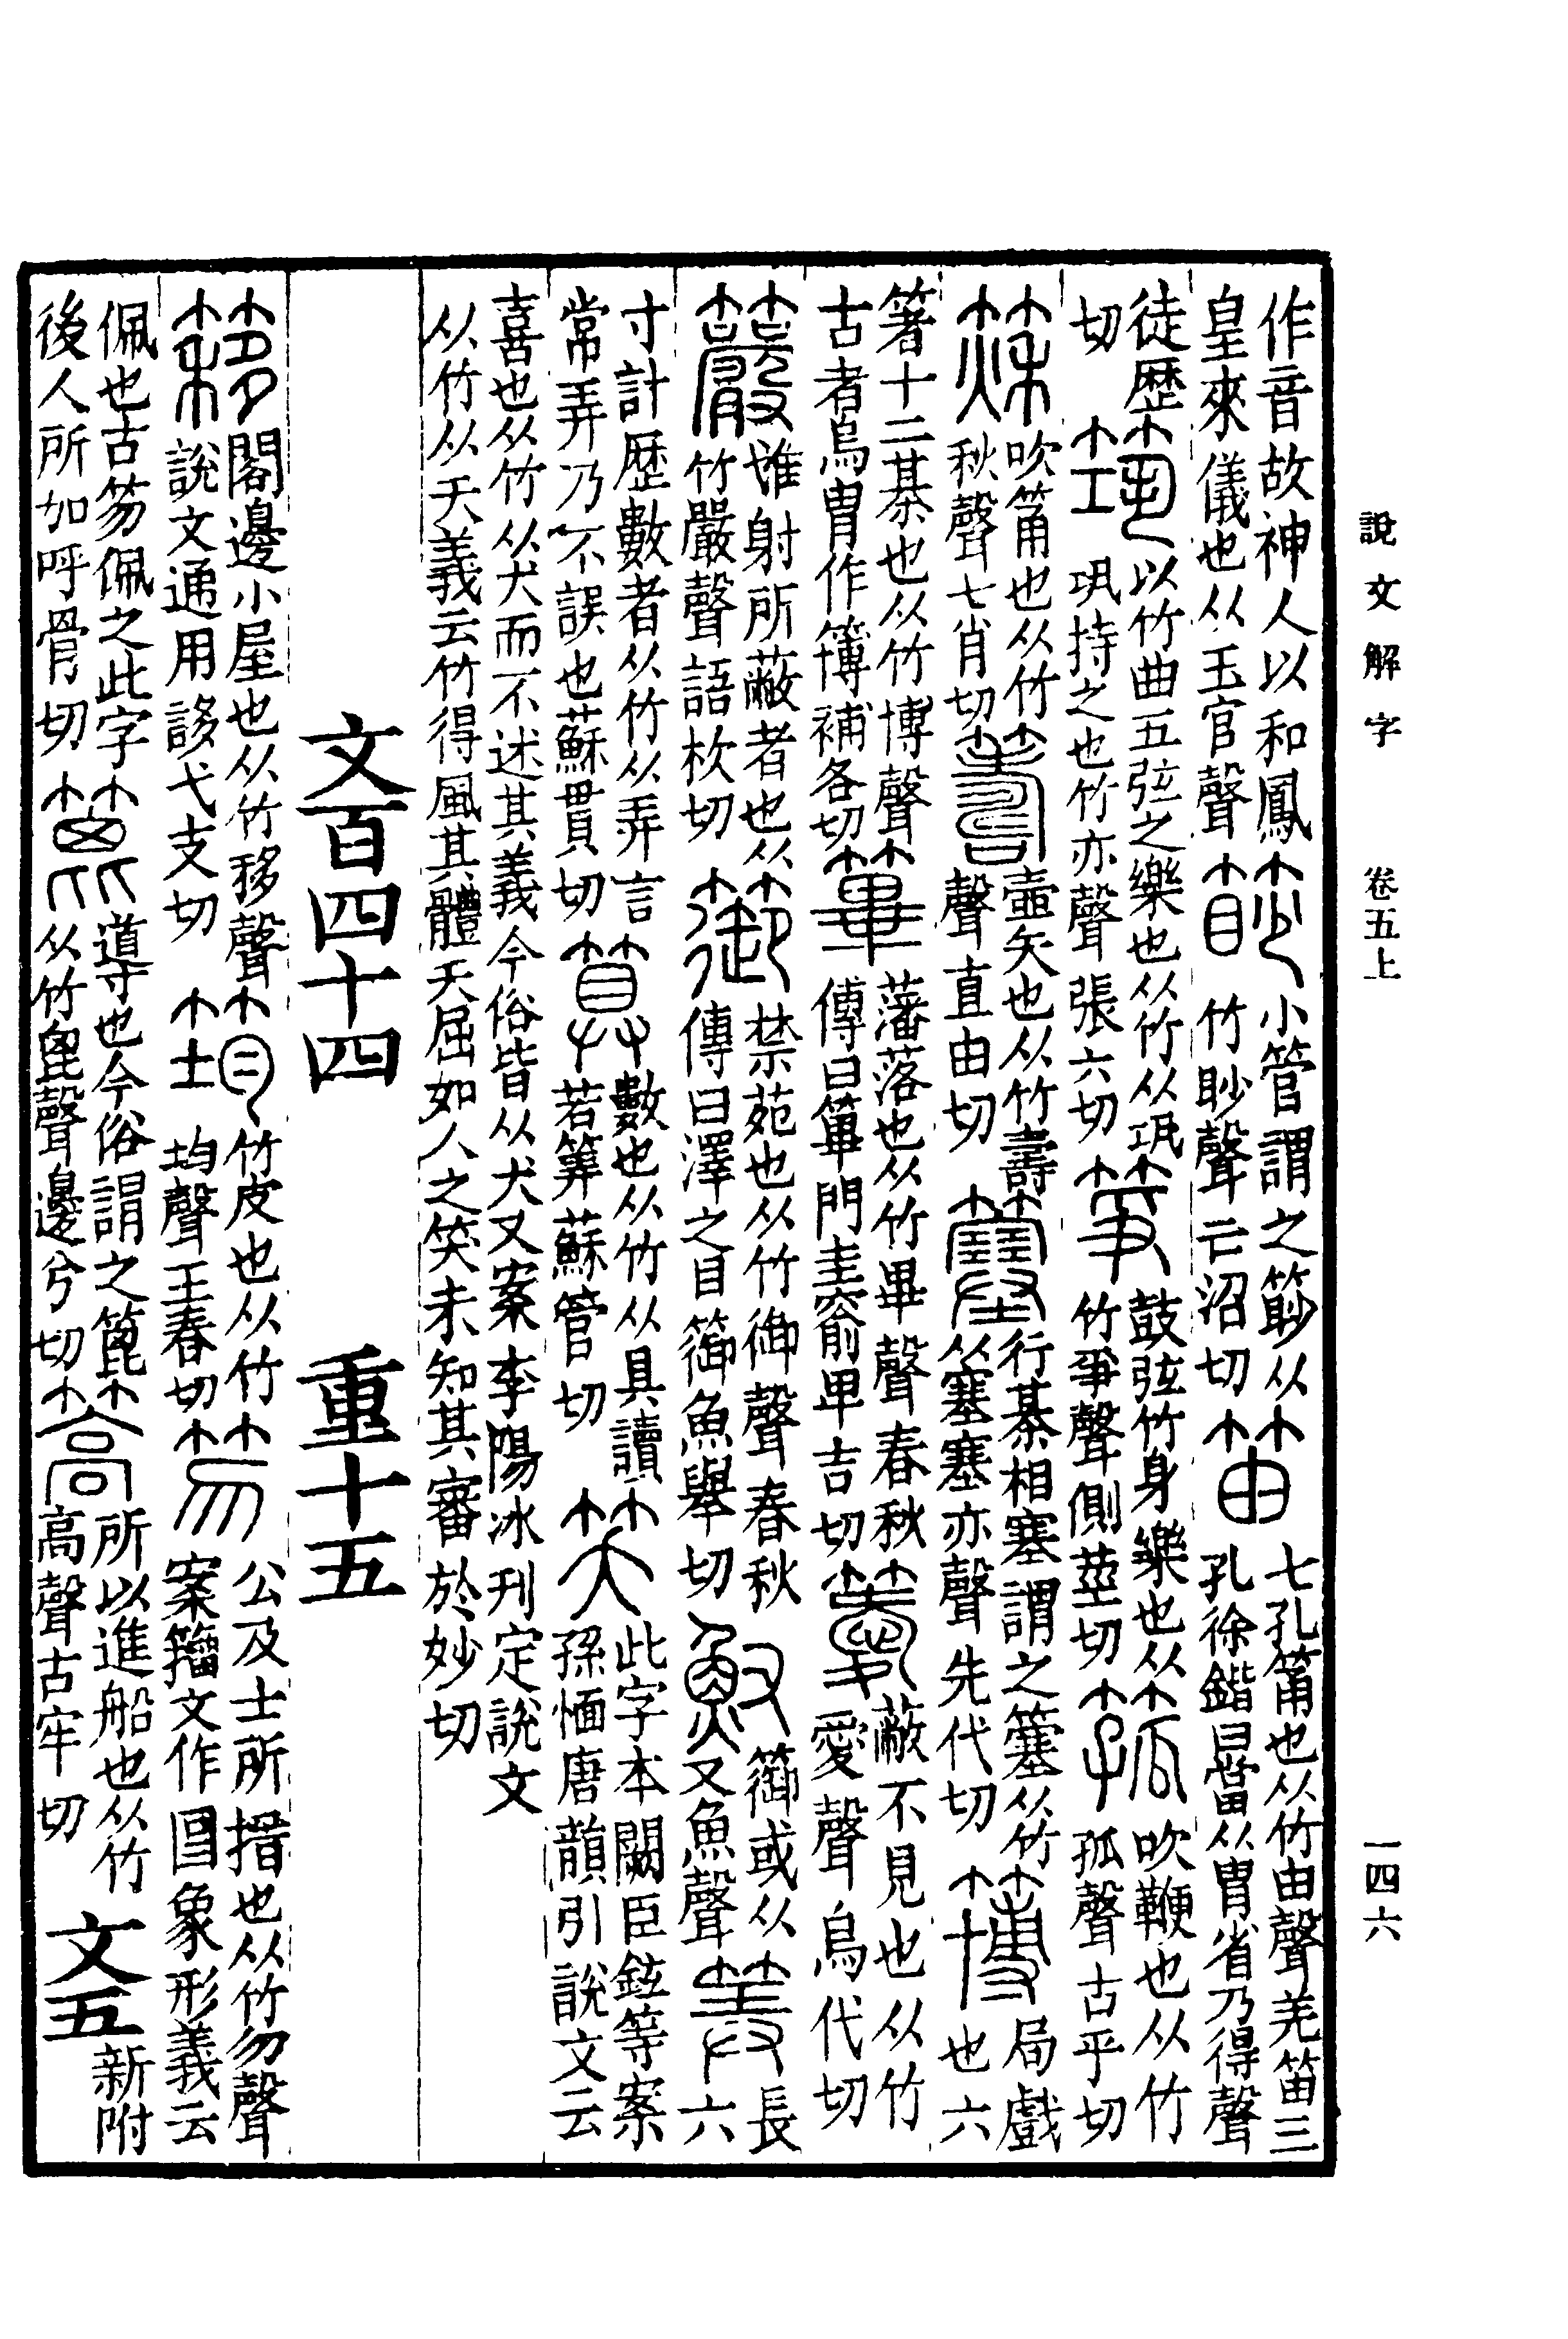 說文解字 卷五上 一四六
作音故神人以和鳳皇來儀也从玉官聲篎小管謂之篎从竹眇聲亡沼切笛七孔筩也从竹由聲羌笛三孔徐鍇曰當从冑省乃得聲
徒歷切筑以竹曲五弦之樂也从竹从巩巩持之也竹亦聲張六切箏鼓弦竹身樂也从竹爭聲側莖切箛吹鞭也从竹孤聲古乎切
篍吹筩也从竹秋聲七肖切籌壺矢也从竹壽聲直由切簺行棊相塞謂之簺从竹从塞塞亦聲先代切簙局戲也六
箸十二棊也从竹博聲古者烏冑作簙補各切篳藩落也从竹畢聲春秋傳曰篳門圭窬卑吉切蔽不見也从竹愛聲烏代切
惟射所蔽者也从竹嚴聲語杴切篽禁苑也从竹御聲春秋傳曰澤之目篽魚舉切篽或从又魚聲筭長六
寸計歷數者从竹从弄言常弄乃不誤也蘇貫切算數也从竹从具讀若筭蘇管切笑此字本闕臣鉉等案孫愐唐韻引說文云
喜也从竹从犬而不述其義今俗皆从犬又案李陽冰刊定說文从竹从夭義云竹得風其體夭屈如人之笑未知其審於妙切
文百四十四 重十五
簃閣邊小屋也从竹移聲說文通用誃弋支切筠竹皮也从竹均聲王春切笏公及士所搢也从竹勿聲案籀文作象形義云
佩也古笏佩之此字後人所加呼骨切篦導也今俗謂之篦从竹𣬉聲邊兮切篙所以進船也从竹高聲古牢切 文五新附